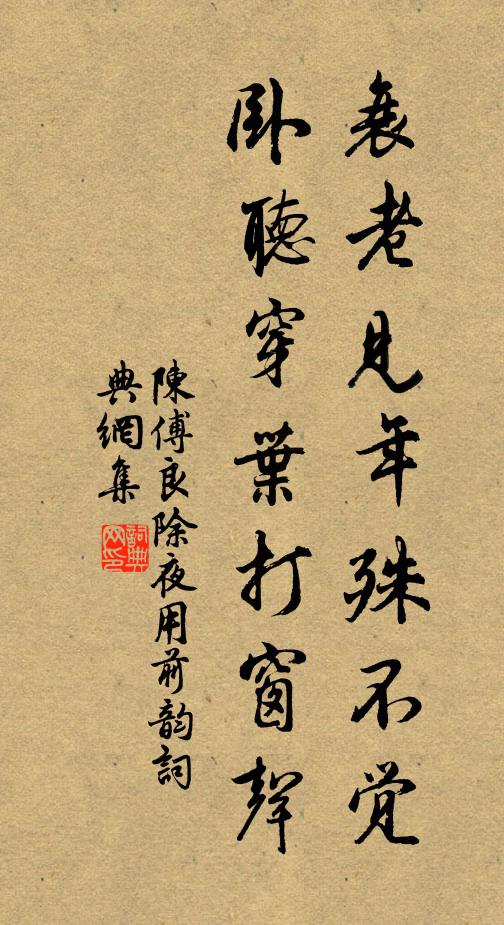 衰老见年殊不觉
卧聽穿葉打窗聲
陳傅良除夜用前韵詞
典網集
詞典網印